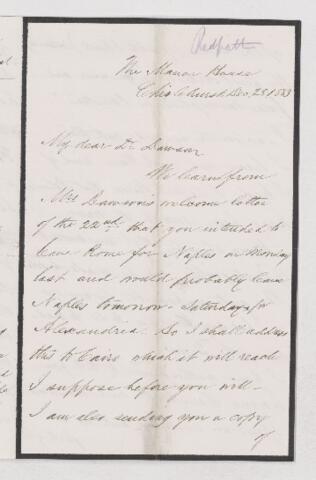 Redpath
The Manor House
Chislehurst Dec. 28 1883
My dear Dr Dawson
We learn from
Mrs Dawson's welcome letter
of the 22nd that you intended to
leave Rome for Naples on Monday
last and would probably leave
Naples tomorrow - Saturday - for
Alexandria. So I shall address
this to Cairo which it will reach
I suppose before you will -
I am also sending you a copy
of